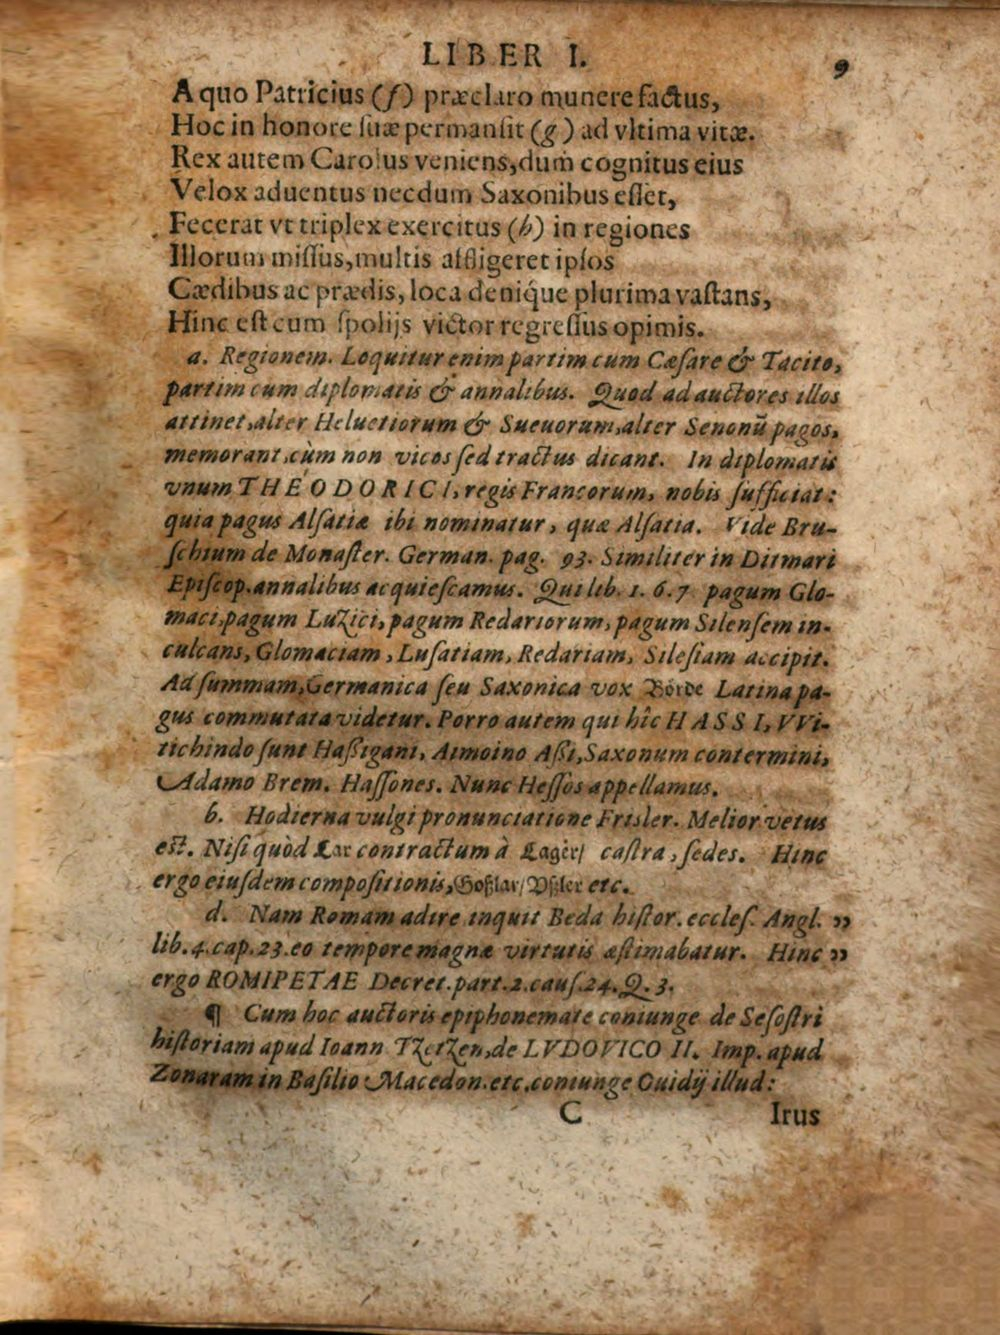 LIBER I. 9
A quo Patricius (f) præclaro munere factus,
Hoc in honore suæ permansit (g) ad vltima vitæ.
Rex autem Carolus veniens, dum cognitus eius
Velox aduentus necdum Saxonibus esset,
Fecerat vt triplex exercitus (h) in regiones
Illorum missus, multis affligeret ipsos
Cædibus ac prædis, loca deniq́ue plurima vastans,
Hinc est cum spolijs victor regressus opimis.
a. Regionem. Loquitur enim partim cum Cæsare & Tacito,
partim cum diplomatis & annalibus. Quod ad auctores illos
attinet, alter Heluetiorum & Sueuorum, alter Senonũ pagos,
memorant, cùm non vicos sed tractus dicant. In diplomatis
vnum THEODORICI, regis Francorum, nobis sufficiat:
quia pagus Alsatiæ ibi nominatur, quæ Alsatia. Vide Bru-
schium de Monaster. German. pag. 93. Similiter in Ditmari
Episcop. annalibus acquiescamus. Qui lib. 1. 6. 7 pagum Glo-
maci, pagum Luzici, pagum Redariorum, pagum Silensem in-
culcans, Glomaciam, Lusatiam, Redariam, Silesiam accipit.
Ad summam, Germanica seu Saxonica vox Börde Latina pa-
gus commutata videtur. Porro autem qui hîc HASSI, VVi-
tichindo sunt Haßigani, Aimoino Aßi, Saxonum contermini,
Adamo Brem. Hassones. Nunc Hessos appellamus.
b. Hodierna vulgi pronunciatione Frisler. Melior vetus
est. Nisi quòd Lar contractum à Lager/ castra, sedes. Hinc
ergo eiusdem compositionis, Goßlar/ Vßler etc.
d. Nam Romam adire inquit Beda histor. eccles. Angl. ”
lib. 4. cap. 23. eo tempore magnæ virtutis æstimabatur. Hinc ”
ergo ROMIPETAE Decret. part. 2. caus. 24. Q. 3.
¶ Cum hoc auctoris epiphonemate coniunge de Sesostri
historiam apud Ioann Tzetzen, de LVDOVICO II. Imp. apud
Zonaram in Basilio Macedon. etc. coniunge Ouidij illud:
C Irus